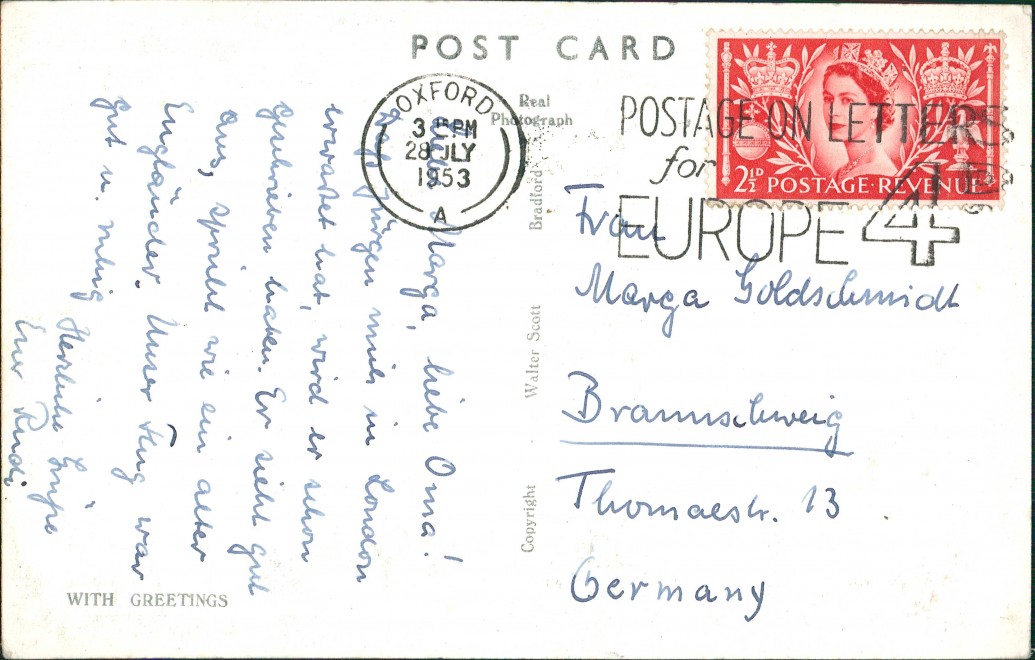 POST CARD
Real
Photograph
OXFORD
3 - PM
28 JLY
1953
A
POSTAGE ON LETTERS
for
EUROPE 4D
2½D POSTAGE REVENUE
Liebe Marga, liebe Oma!
Daß Jürgen mich in London
erwartet hat, wird er schon
geschrieben haben. Er sieht gut
aus, spricht wie ein alter
Engländer. Unser Flug war
gut u. ruhig
Herzliche Grüße
Euer Rudi
Frau
Marga Goldschmidt
Braunschweig
Thomaestr. 13
Germany
Copyright Walter Scott Bradford
WITH GREETINGS